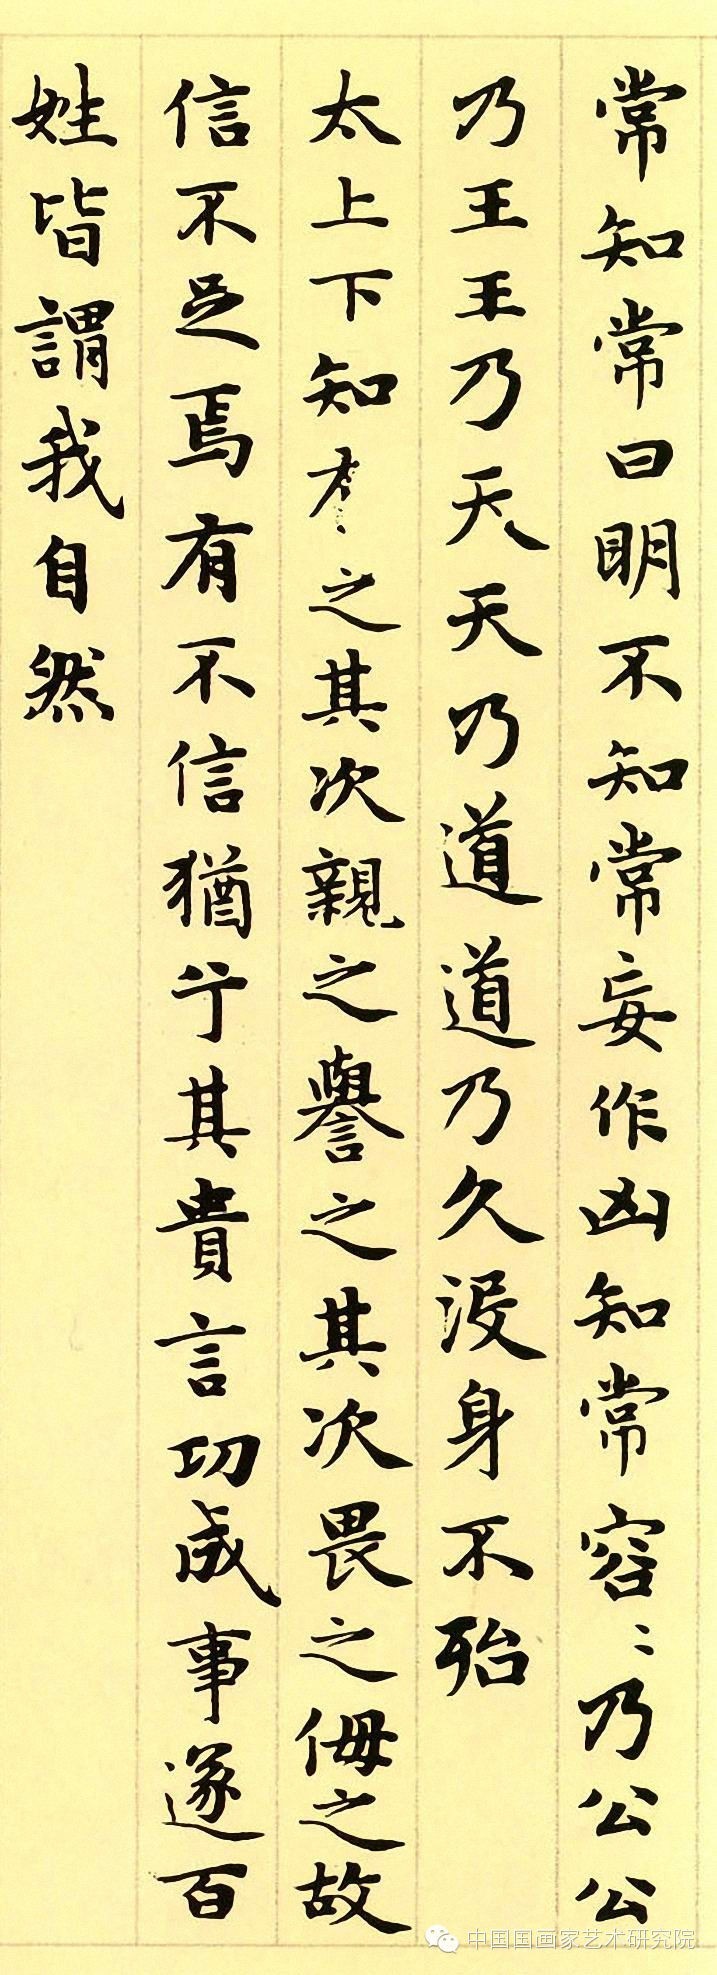 常知常曰明不知常妄作凶知常容〻乃公公
乃王王乃天天乃道道乃久沒身不殆
太上下知之其次親之譽之其次畏之侮之故
信不足焉有不信猶兮其貴言功成事遂百
姓皆謂我自然
中国国画家艺术研究院